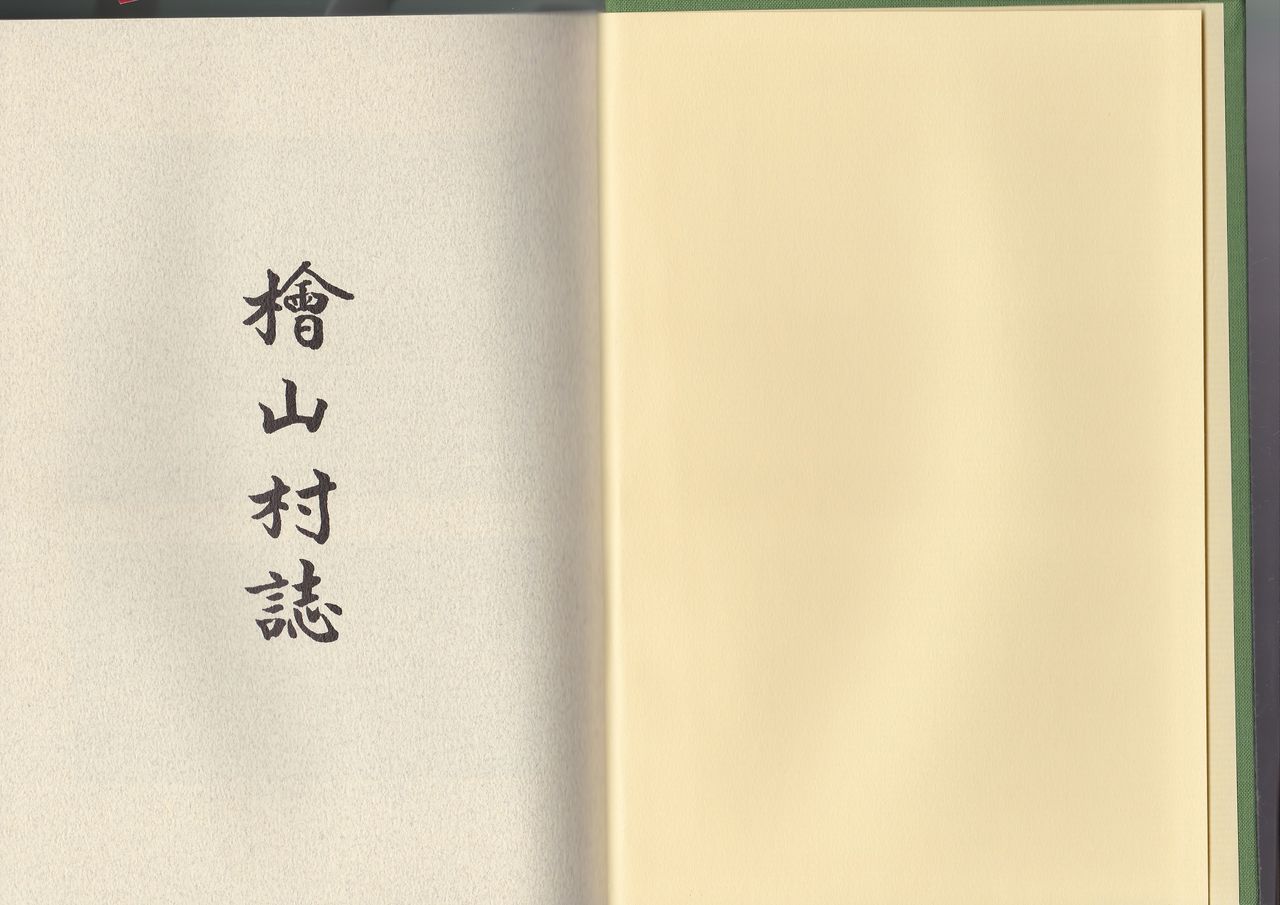 檜山村誌